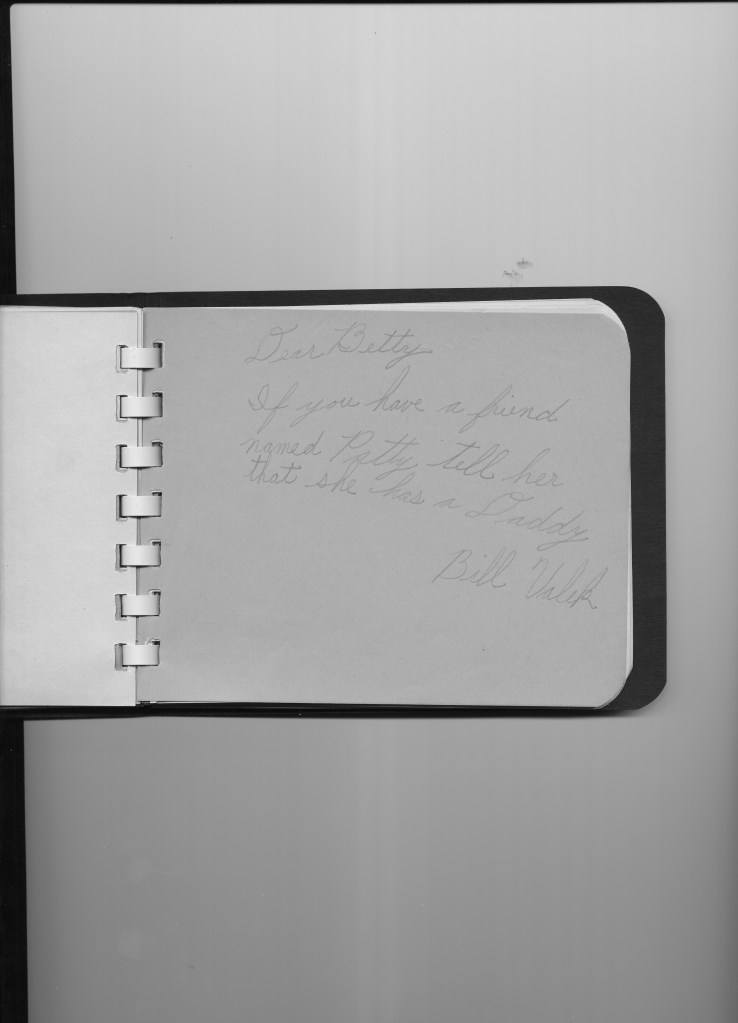 Dear Betty
If you have a friend
named Patty tell her
that she has a Daddy
Bill Valek